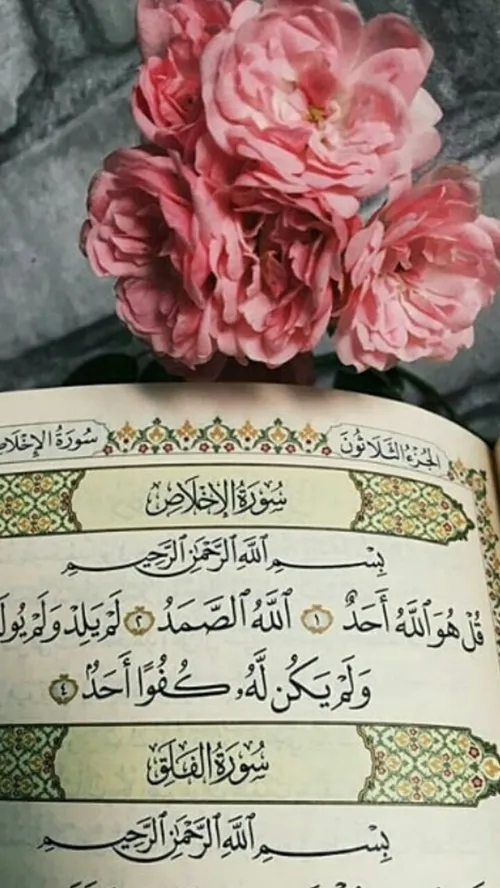 الجُزْءُ الثَّلَاثُونَ سُورَةُ الإِخْلَاصِ
سُورَةُ الإِخْلَاصِ
بِسْمِ ٱللَّهِ ٱلرَّحْمَٰنِ ٱلرَّحِيمِ
قُلْ هُوَ ٱللَّهُ أَحَدٌ ١ ٱللَّهُ ٱلصَّمَدُ ٢ لَمْ يَلِدْ وَلَمْ
وَلَمْ يَكُن لَّهُۥ كُفُوًا أَحَدٌۢ ٤
سُورَةُ الفَلَقِ
بِسْمِ ٱللَّهِ ٱلرَّحْمَٰنِ ٱلرَّحِيمِ